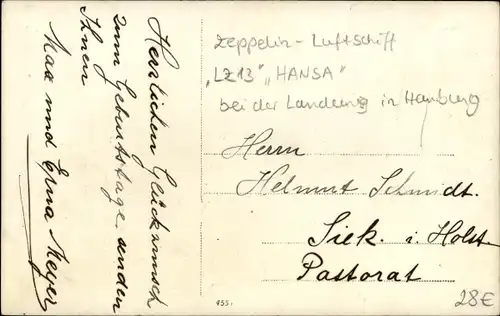 Herzlichen Glückwunsch
zum Geburtstage senden
Ihnen
Max und Erna Meyer
Zeppelin-Luftschiff
„LZ13" „HANSA"
bei der Landung in Hamburg
Herrn
Helmut Schmidt.
Siek. i. Holst.
Pastorat
28€